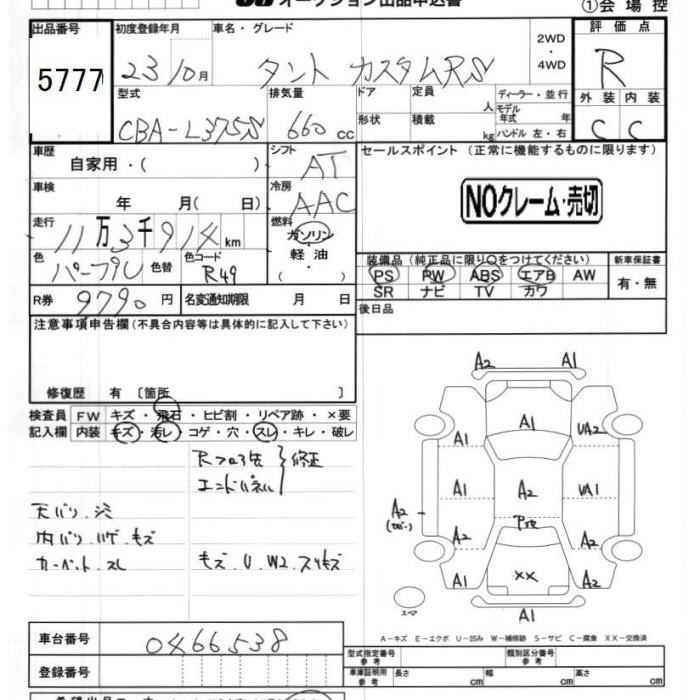 オークション出品申込書
①会場控
出品番号 初度登録年月 車名・グレード 評価点
5777 23 10月 タント カスタムRS 2WD ・ 4WD R
型式 排気量 ドア 定員 人 ディーラー・並行 外装 内装
CBA-L375S 660 cc 形状 積載 kg モデル年式 年 ハンドル 左・右 C C
車歴 自家用・( ) シフト AT セールスポイント (正常に機能するものに限ります)
車検 年 月( 日) 冷房 AAC NOクレーム・売切
走行 11万3千914km 燃料 ガソリン・軽油・( )
色 パープル 色替 色コード R49
装備品 (純正品に限り〇をつけてください) 新車保証書
PS PW ABS エアB AW 有・無
SR ナビ TV カワ
R券 9790円 名変通知期限 月 日 後日品
注意事項申告欄(不具合内容等は具体的に記入して下さい)
修復歴 有 〔箇所 〕
検査員 FW キズ・飛石・ヒビ割・リペア跡・×要
記入欄 内装 キズ・汚レ・コゲ・穴・スレ・キレ・破レ
エンドパネル 修正
天バリ・シミ
内バリ・ハゲ・キズ
カーペット・スレ
キズ・U・W2・スリキズ
A2 A1
A1
A1 UA2
A1 A2 UA1
A2
A2 A2
A1 XX A2
スペア A1
A-キズ E-エクボ U-凹み W-補修跡 S-サビ C-腐食 XX-交換済
車台番号 0466538
登録番号
型式指定番号 参考 類別区分番号 参考
車庫証明用 参考 長さ cm 幅 cm 高さ cm